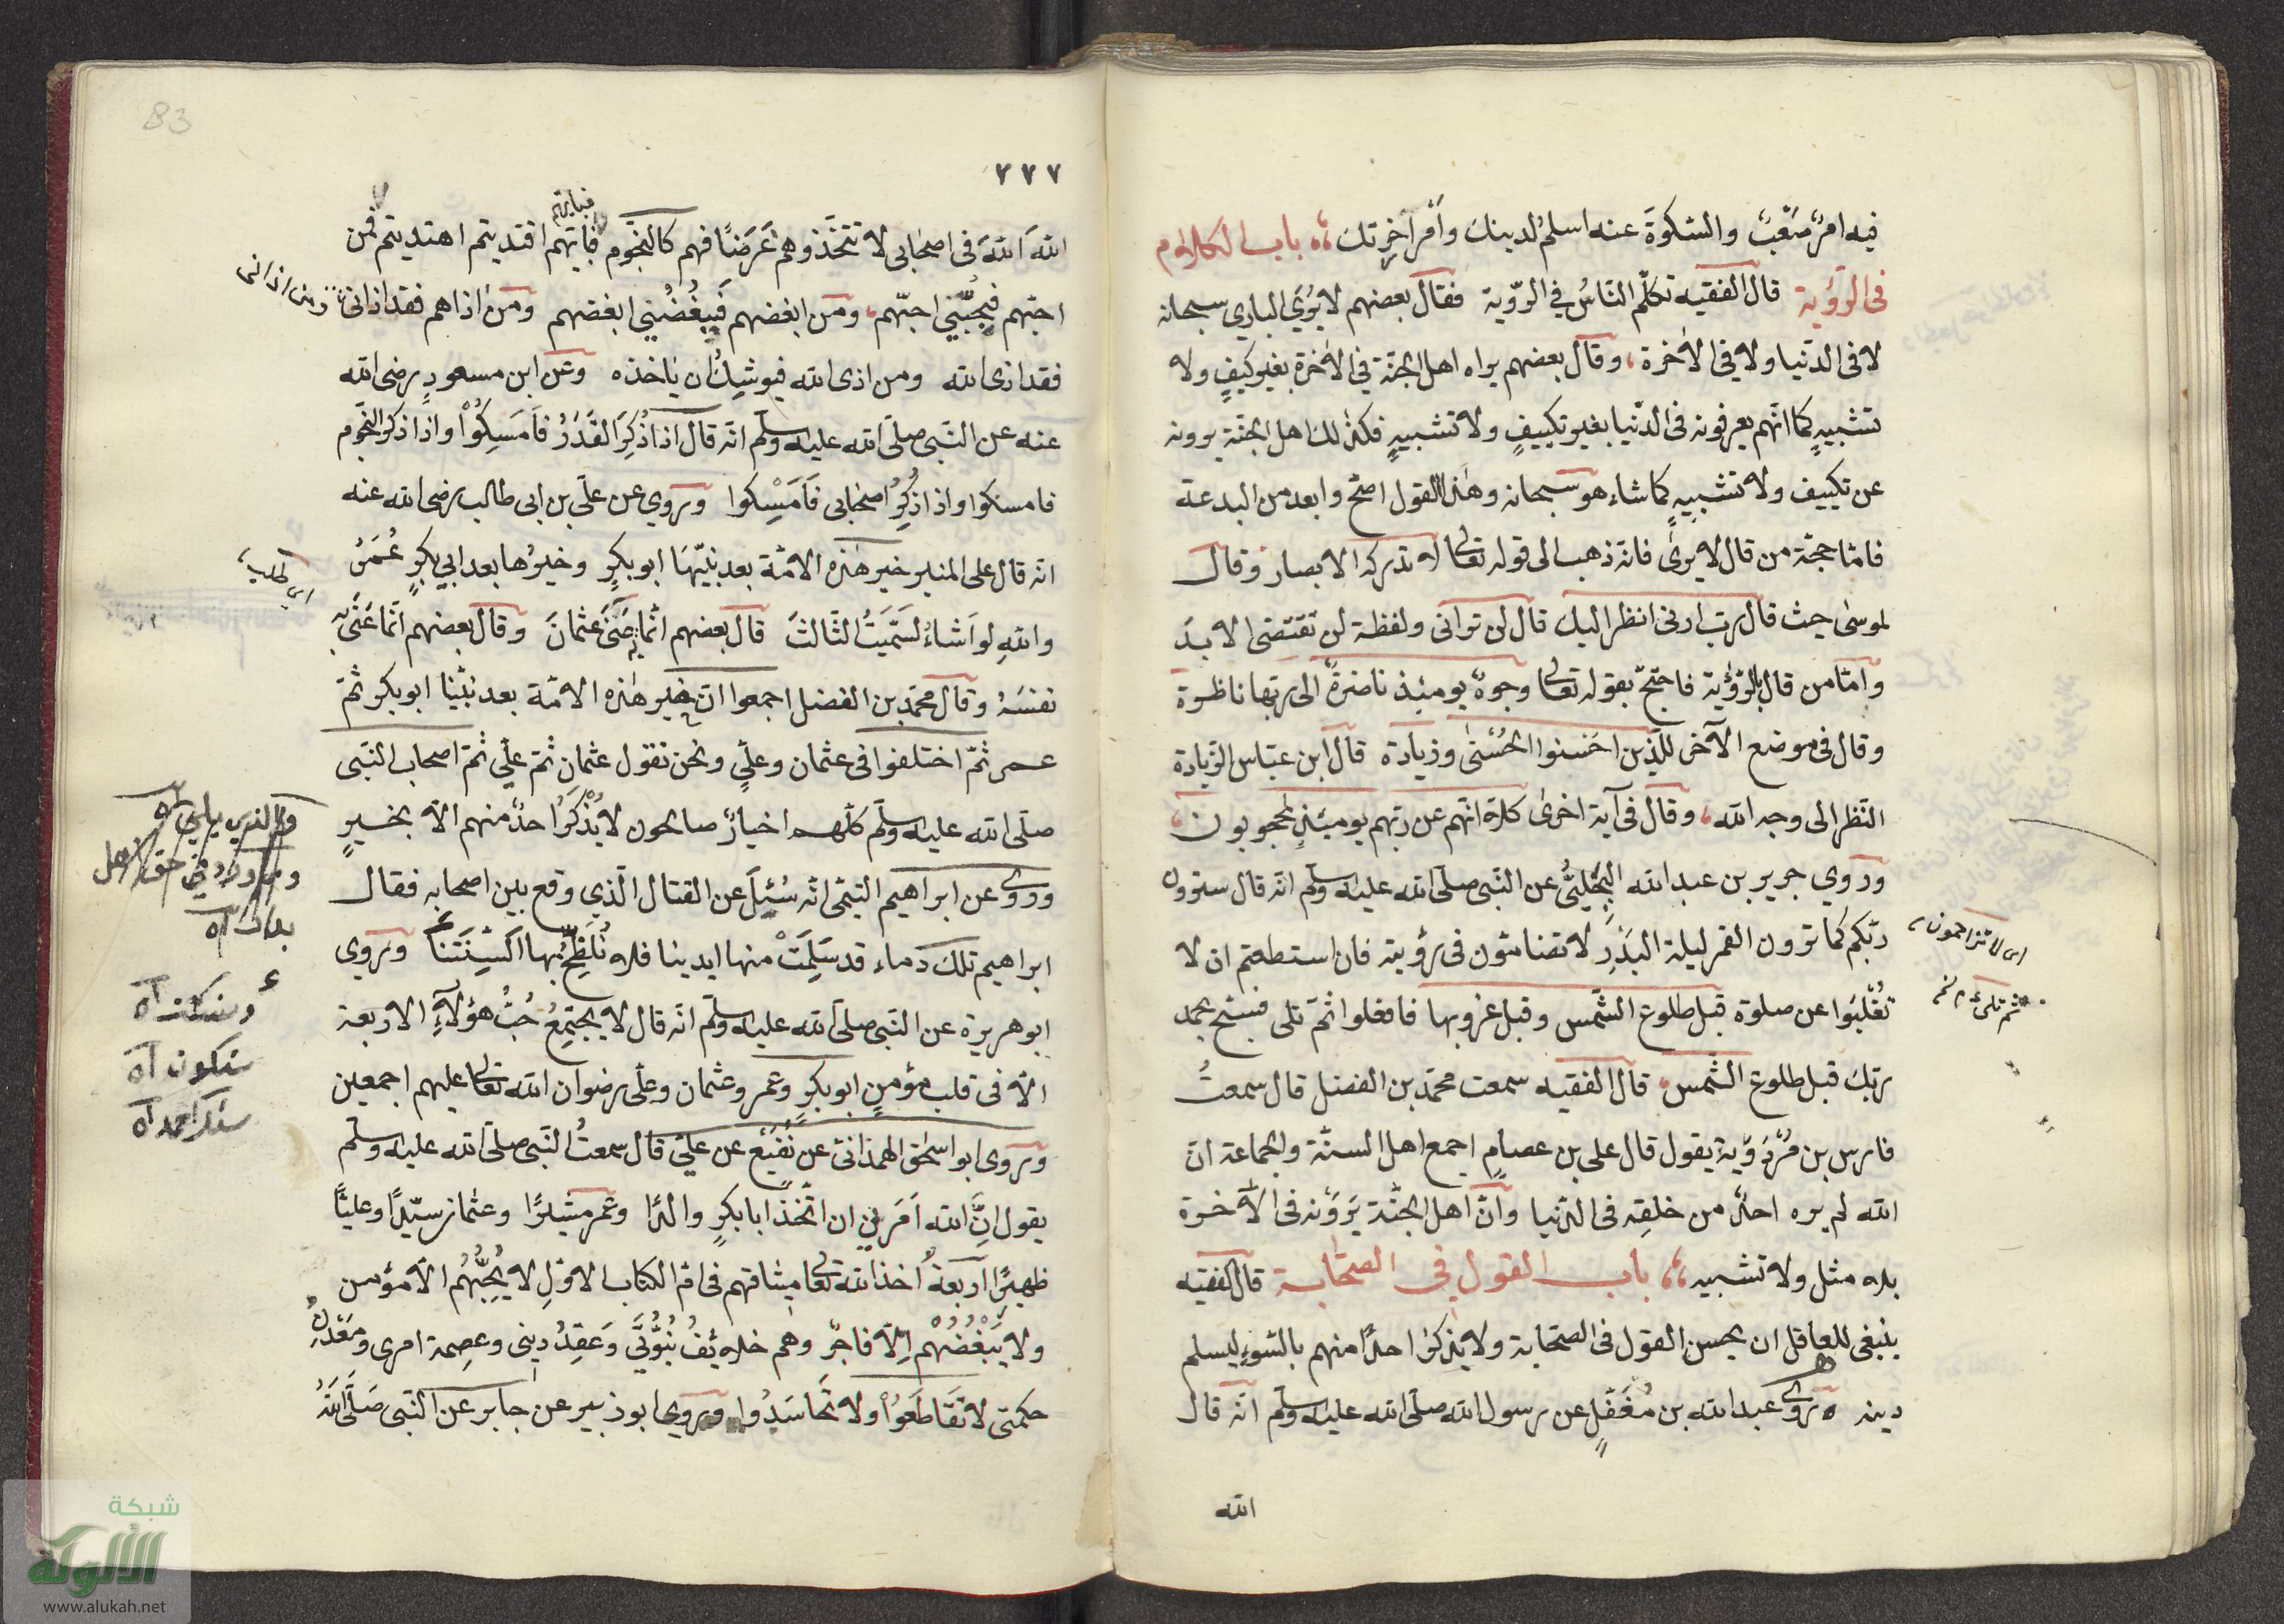 فيه امرٌ متعبٌ والسكوت عنه اسلم لدينك وأمر آخرتك باب الكلام
فى الرؤية قال الفقيه تكلّم النّاسُ في الرّوية فقال بعضهم لا يُرَى الباري سبحانه
لا فى الدّنيا ولا في الآخرة وقال بعضهم يراه اهل الجنّة في الآخرة بغير كيفٍ ولا
تشبيهٍ كما انّهم يعرفونه فى الدّنيا بغير تكييفٍ ولا تشبيهٍ فكذلك اهل الجنّة يرونه
عن تكييف ولا تشبيهٍ كما شاء هو سبحانه وهذا القول اصحّ وابعد من البدعة
فامّا حجّة من قال لا يرىٰ فانّه ذهب الى قوله تعالى لا تدركه الابصار وقال
لموسىٰ حيث قال رب ارنى انظر اليك قال لن ترانى ولفظة لن تقتضى الابد
وامّا من قال بالرّؤية فاحتجّ بقوله تعالى وجوهٌ يومئذ ناضرةٌ الى ربها ناظرة
وقال فى موضع الآخر للّذين احسنوا الحُسْنىٰ وزيادة قال ابن عبّاس الزّيادة
النّظر الى وجه الله وقال فى آية اخرىٰ كلا انّهم عن ربّهم يومئذٍ لمحجوبون
وروي جرير بن عبد الله البجليُّ عن النّبى صلّى الله عليه وسلّم انّه قال سترون
ربّكم كما ترون القمر ليلة البدرِ لا تضامّون فى رؤيته فان استطعتم ان لا
تُغْلَبُوا عن صلوة قبل طلوع الشّمس وقبل غروبها فافعلوا ثمّ تلى فسبّح بحمد
ربّك قبل طلوع الشّمس قال الفقيه سمعت محمّد بن الفضل قال سمعتُ
فارس بن مَرْدَوَيه يقول قال على بن عصامٍ اجمع اهل السنّة والجماعة انّ
الله لم يره احدٌ من خلقِه فى الدّنيا وانّ اهل الجنّة يَرَوْنه فى الآخرة
بلا مثل ولا تشبيه باب القول في الصحابة قال الفقيه
ينبغى للعاقل ان يحسن القول فى الصحابة ولا يذكر احدًا منهم بالسّوءِ ليسلم
دينه وروى عبد الله بن مُغَفَّلٍ عن رسول الله صلّى الله عليه وسلّم انّه قال
الله
اى لا تزاحمون
83
٢٢٧
اللهَ اللهَ فى اصحابى لا تتّخذوهم غَرَضًا فهم كالنّجوم فايّهم اقتديتم اهتديتم فمن
فبايهم
احبّهم فبحُبّي احبّهم ومن ابغضهم فببُغْضي ابغضهم ومن اذاهم فقد اذانى
ومن اذانى
فقد اذى الله ومن اذى الله فيوشِكُ ان ياخذه وعن ابن مسعودٍ رضى الله
عنه عن النّبى صلّى الله عليه وسلّم انّه قال اذا ذُكِرَ القَدَرُ فَاَمسِكُوا واذا ذكر النّجوم
فامسكوا واذا ذُكِرَ اصحابى فَاَمْسِكوا وروي عن علىّ بن ابى طالب رضى الله عنه
انّه قال على المنبر خير هٰذه الامّة بعد نبيّها ابو بكرٍ وخيرُها بعد ابي بكرٍ عُمَرُ
والله لو اَشاءُ لسمّيتُ الثّالث قال بعضهم انّما عَنَى به عثمانَ وقال بعضهم انّما عَنَى به
نفسَهُ وقال محمّد بن الفضل اجمعوا انّ خير هٰذه الامّة بعد نبيّنا ابو بكر ثمّ
عمر ثمّ اختلفوا فى عثمان وعلىٍّ ونحن نقول عثمان ثمّ علىّ ثمّ اصحاب النّبى
صلّى الله عليه وسلّم كلّهم اخيارٌ صالحون لا يُذْكَرُ احدٌ منهم الّا بخيرٍ
وروى عن ابراهيم التيمى انّه سُئِلَ عن القتال الّذي وقع بين اصحابه فقال
ابراهيم تلك دماء قد سَلِمَتْ منها ايدينا فلا نُلَطِّخُ بها اَلْسِنَتَنا وروي
ابو هريرة عن النّبى صلّى الله عليه وسلّم انّه قال لا يجتمِعُ حُبُّ هؤلآءِ الاربعة
الّا فى قلب مؤمنٍ ابو بكرٍ وعمر وعثمان وعلى رضوان الله تعالى عليهم اجمعين
وروى ابو اسحٰق الهمدانىّ عن نُفَيْع عن علىّ قال سمعتُ النّبى صلّى الله عليه وسلّم
يقول اِنَّ الله اَمَرَني ان اتّخذ ابا بكرٍ والدًا وعمر مشيرًا وعثمان سيّدًا وعليًّا
ظهيرًا اربعةٌ اخذ الله تعالى ميثاقهم فى امّ الكتاب الاوّلِ لا يُحِبُّهُم الّا مؤمن
ولا يُبْغِضُهُمْ اِلّا فاجرٌ وهم خلائفُ نُبُوَّتي وَعَقِدُ دينى وعِصمة امرى ومَعْدِنُ
حكمتى لا تَقَاطَعُوا ولا تَحَاسَدُوا وروى ابو زبير عن جابر عن النّبى صَلَّى اللهُ
شبكة
الألوكة
www.alukah.net